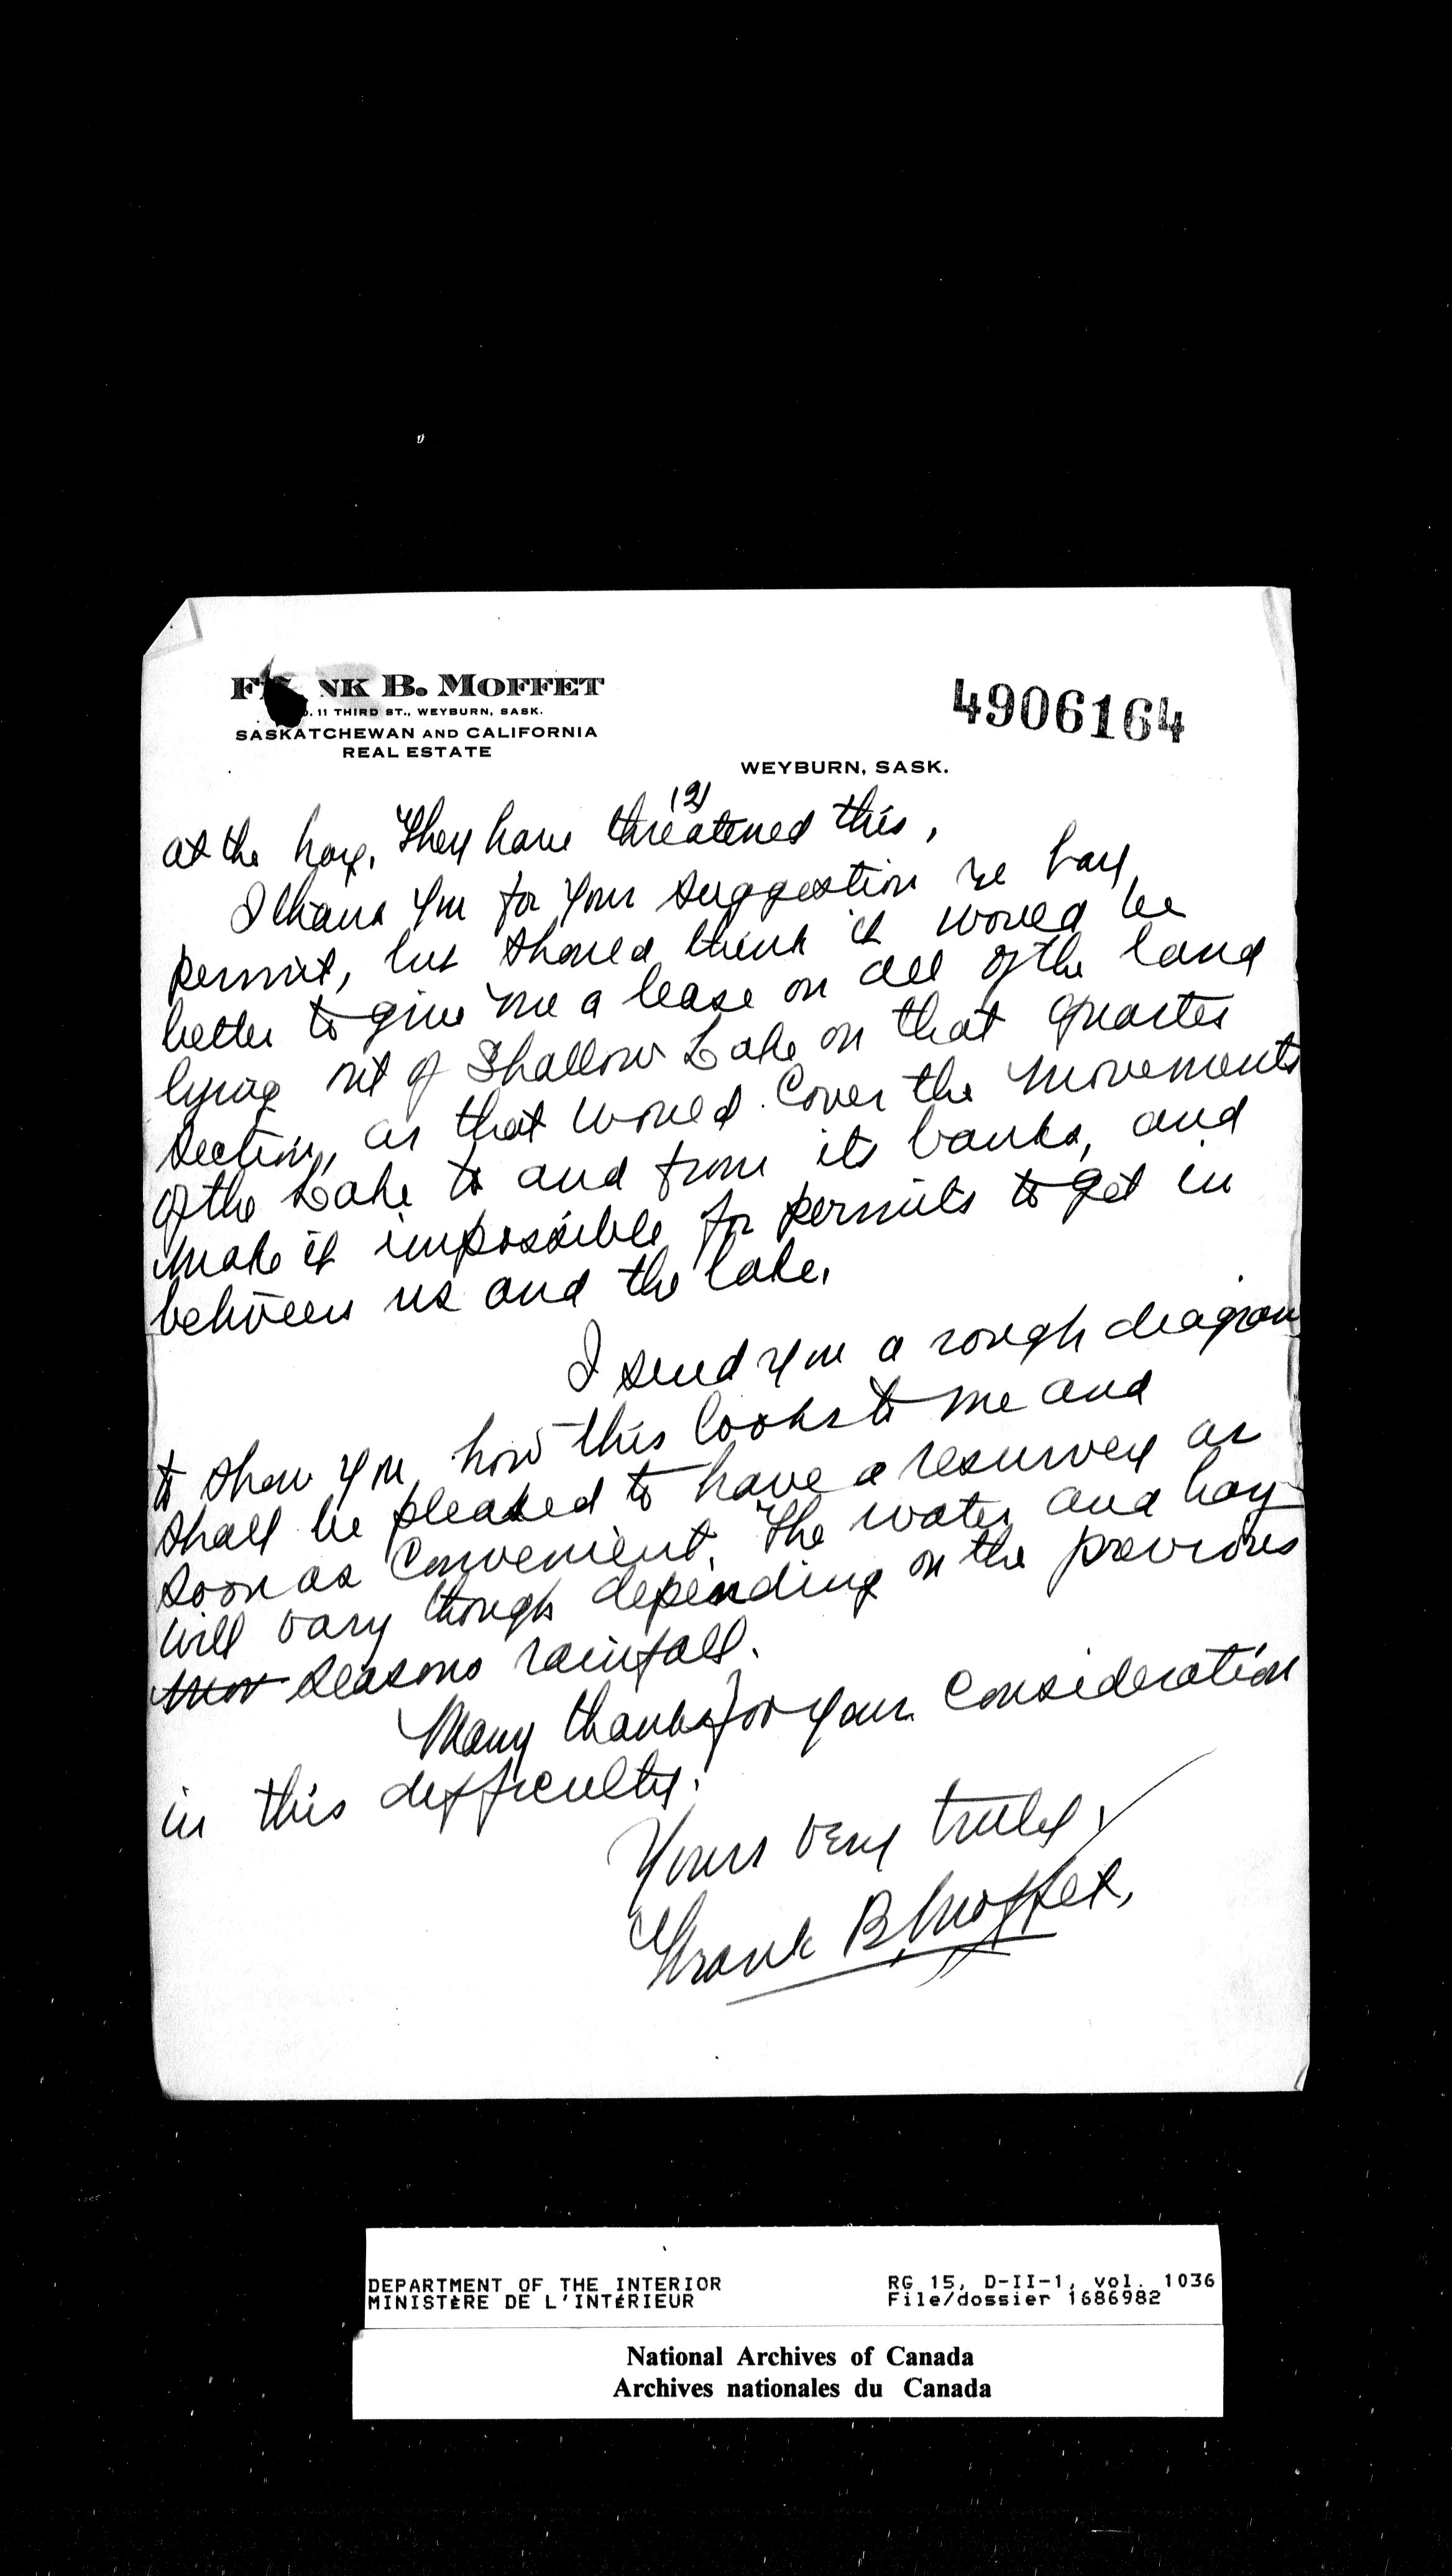 FRANK B. MOFFET
. 11 THIRD ST., WEYBURN, SASK.
SASKATCHEWAN AND CALIFORNIA
REAL ESTATE
4906164
WEYBURN, SASK.
(2)
at the hay. They have threatened this,
I thank you for your suggestion re hay
permit, but should think it would be
better to give me a lease on all of the land
lying out of Shallow Lake on that quarter
section, as that would cover the movements
of the Lake to and from its banks, and
make it impossible for permits to get in
between us and the lake.
I send you a rough diagram
to show you how this looks to me and
shall be pleased to have a resurvey as
soon as convenient. The water and hay
will vary though depending on the previous
seasons rainfall.
Many thanks for your consideration
in this difficulty.
Yours very truly,
Frank B. Moffet.
DEPARTMENT OF THE INTERIOR
MINISTÈRE DE L'INTÉRIEUR
RG 15, D-II-1, vol. 1036
File/dossier 1686982
National Archives of Canada
Archives nationales du Canada